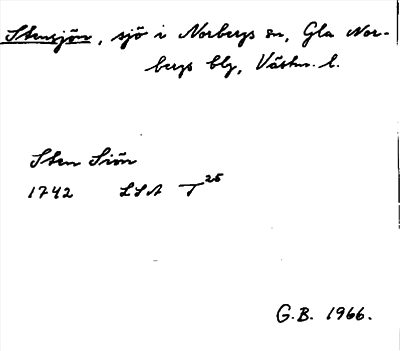 Stensjön, sjö i Norbergs sn, Gla Nor-
bergs blg, Västm. l.
Sten Siön
1742 LSA T 25
G.B. 1966.